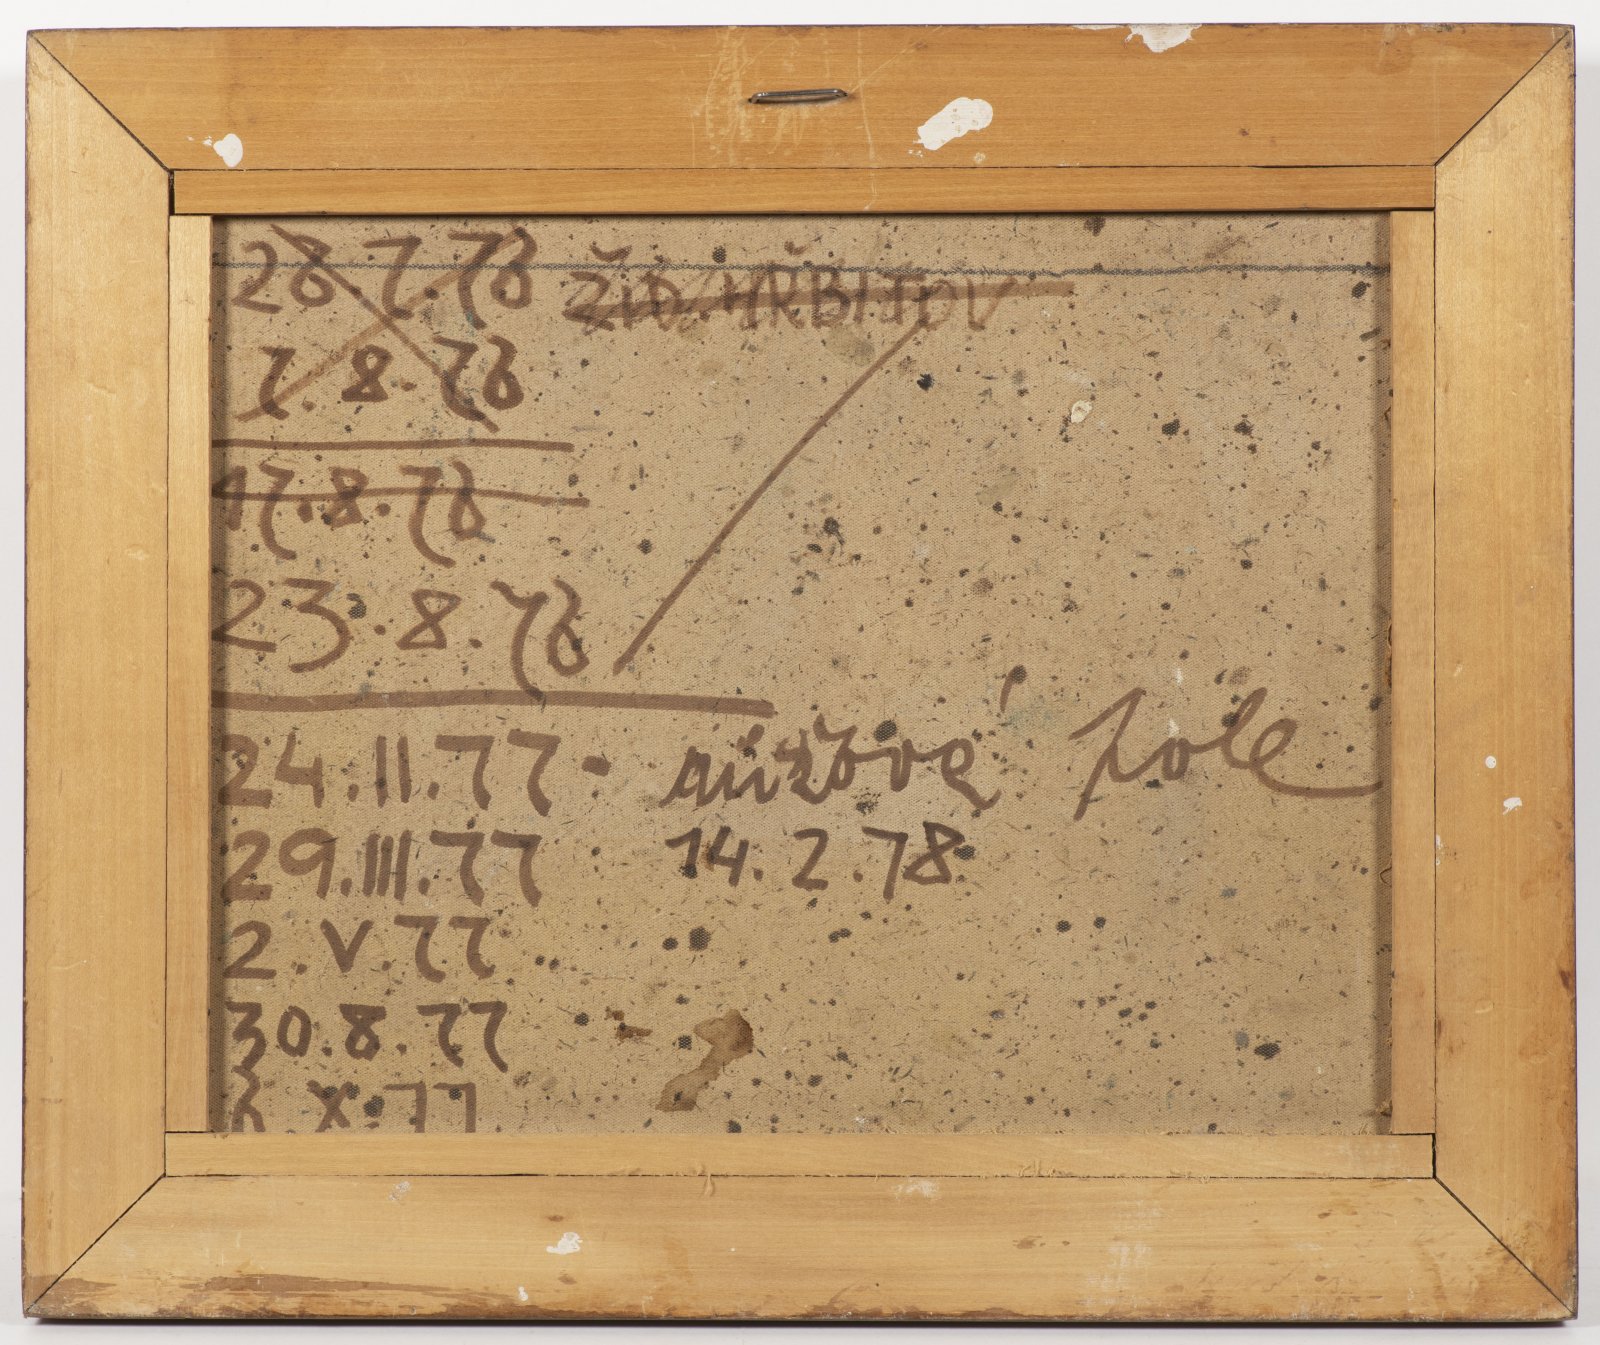 28.7.76 ŽID. HŘBITOV
7.8.76
17.8.76
23.8.76
24.II.77 - růžové pole
29.III.77 - 14.2.78
2.V.77
30.8.77
6.X.77